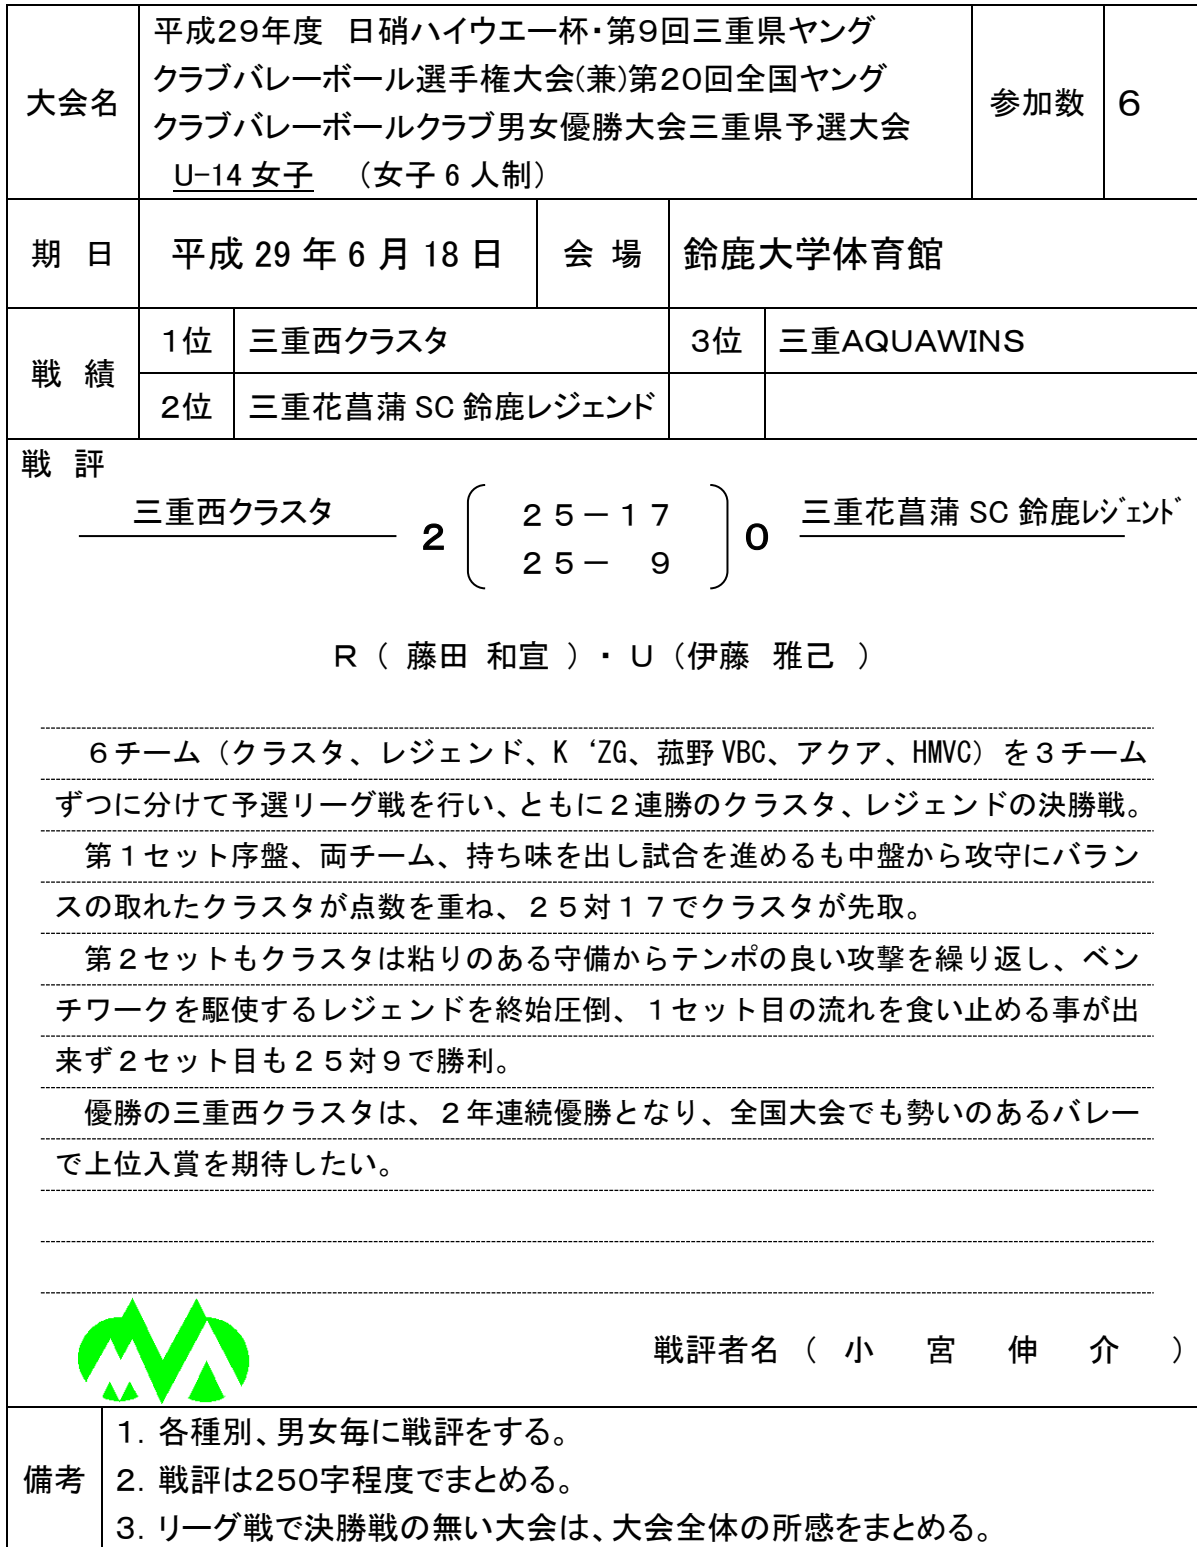 大会名
平成29年度　日硝ハイウエー杯・第9回三重県ヤング
クラブバレーボール選手権大会(兼)第20回全国ヤング
クラブバレーボールクラブ男女優勝大会三重県予選大会
U-14 女子　（女子 6 人制）
参加数
6
期 日
平成 29 年 6 月 18 日
会 場
鈴鹿大学体育館
戦 績
1位
三重西クラスタ
3位
三重AQUAWINS
2位
三重花菖蒲 SC 鈴鹿レジェンド
戦 評
三重西クラスタ
2
２５－１７
２５－　９
0
三重花菖蒲 SC 鈴鹿ﾚｼﾞｪﾝﾄﾞ
Ｒ（ 藤田 和宣 ）・Ｕ（伊藤 雅己 ）
６チーム（クラスタ、レジェンド、K ‘ZG、菰野 VBC、アクア、HMVC）を３チーム
ずつに分けて予選リーグ戦を行い、ともに２連勝のクラスタ、レジェンドの決勝戦。
第１セット序盤、両チーム、持ち味を出し試合を進めるも中盤から攻守にバラン
スの取れたクラスタが点数を重ね、２５対１７でクラスタが先取。
第２セットもクラスタは粘りのある守備からテンポの良い攻撃を繰り返し、ベン
チワークを駆使するレジェンドを終始圧倒、１セット目の流れを食い止める事が出
来ず２セット目も２５対９で勝利。
優勝の三重西クラスタは、２年連続優勝となり、全国大会でも勢いのあるバレー
で上位入賞を期待したい。
戦評者名（ 小　宮　伸　介 ）
備考
1．各種別、男女毎に戦評をする。
2．戦評は250字程度でまとめる。
3．リーグ戦で決勝戦の無い大会は、大会全体の所感をまとめる。